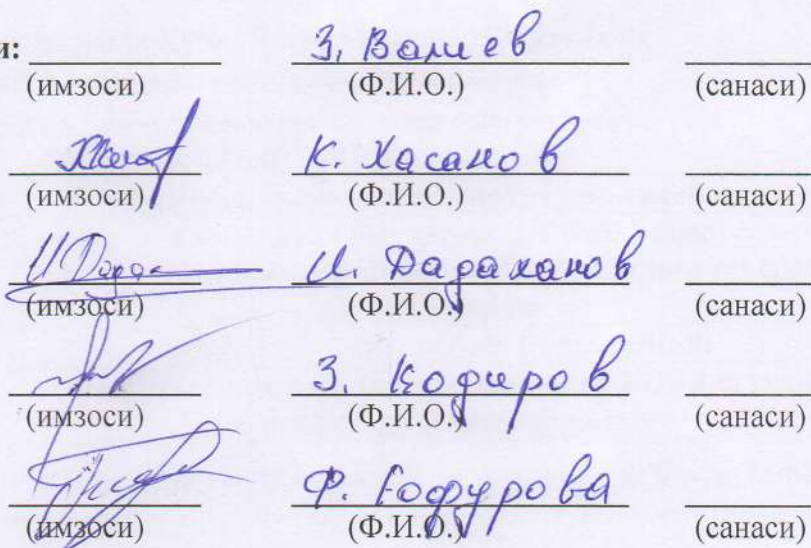 и: З. Валиев
(имзоси) (Ф.И.О.) (санаси)
К. Хасанов
(имзоси) (Ф.И.О.) (санаси)
И. Дадаханов
(имзоси) (Ф.И.О.) (санаси)
З. Кодиров
(имзоси) (Ф.И.О.) (санаси)
Ф. Гофурова
(имзоси) (Ф.И.О.) (санаси)